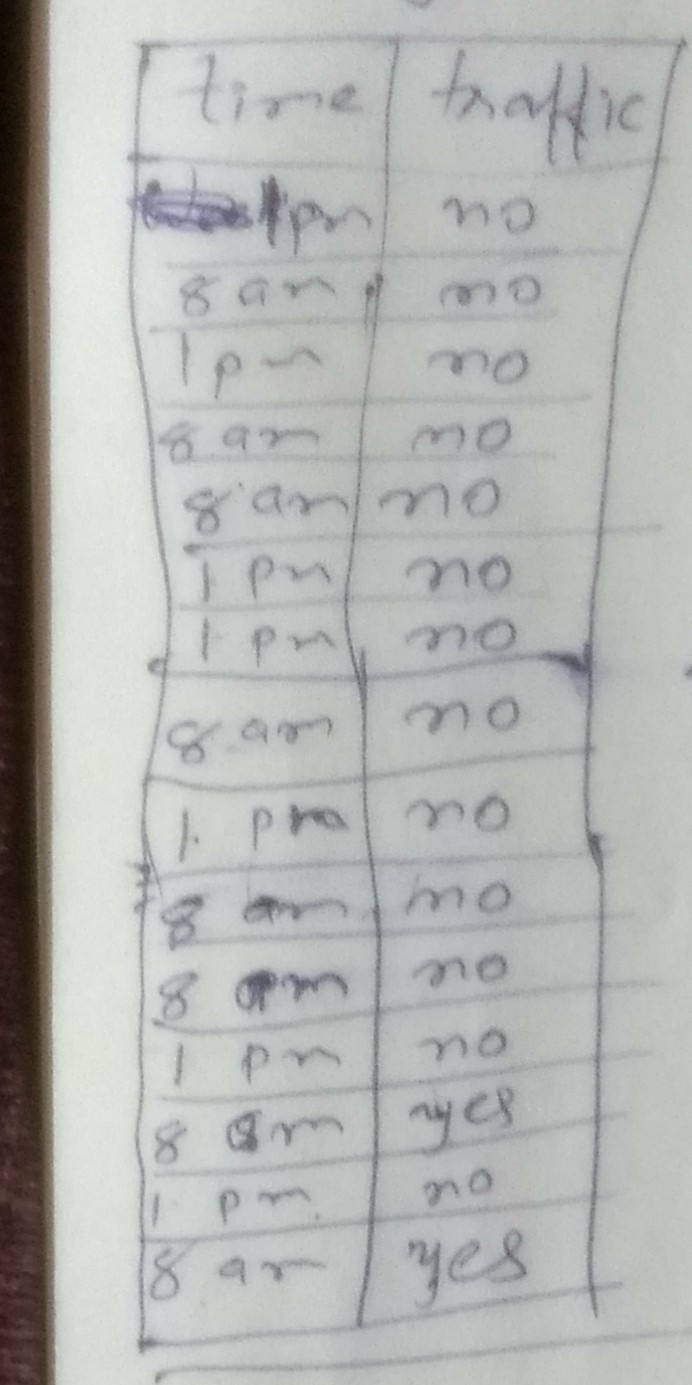 time traffic
1pm no
8 am no
1 pm no
8 am no
8 am no
1 pm no
1 pm no
8 am no
1 pm no
8 am no
8 am no
1 pm no
8 am yes
1 pm no
8 am yes